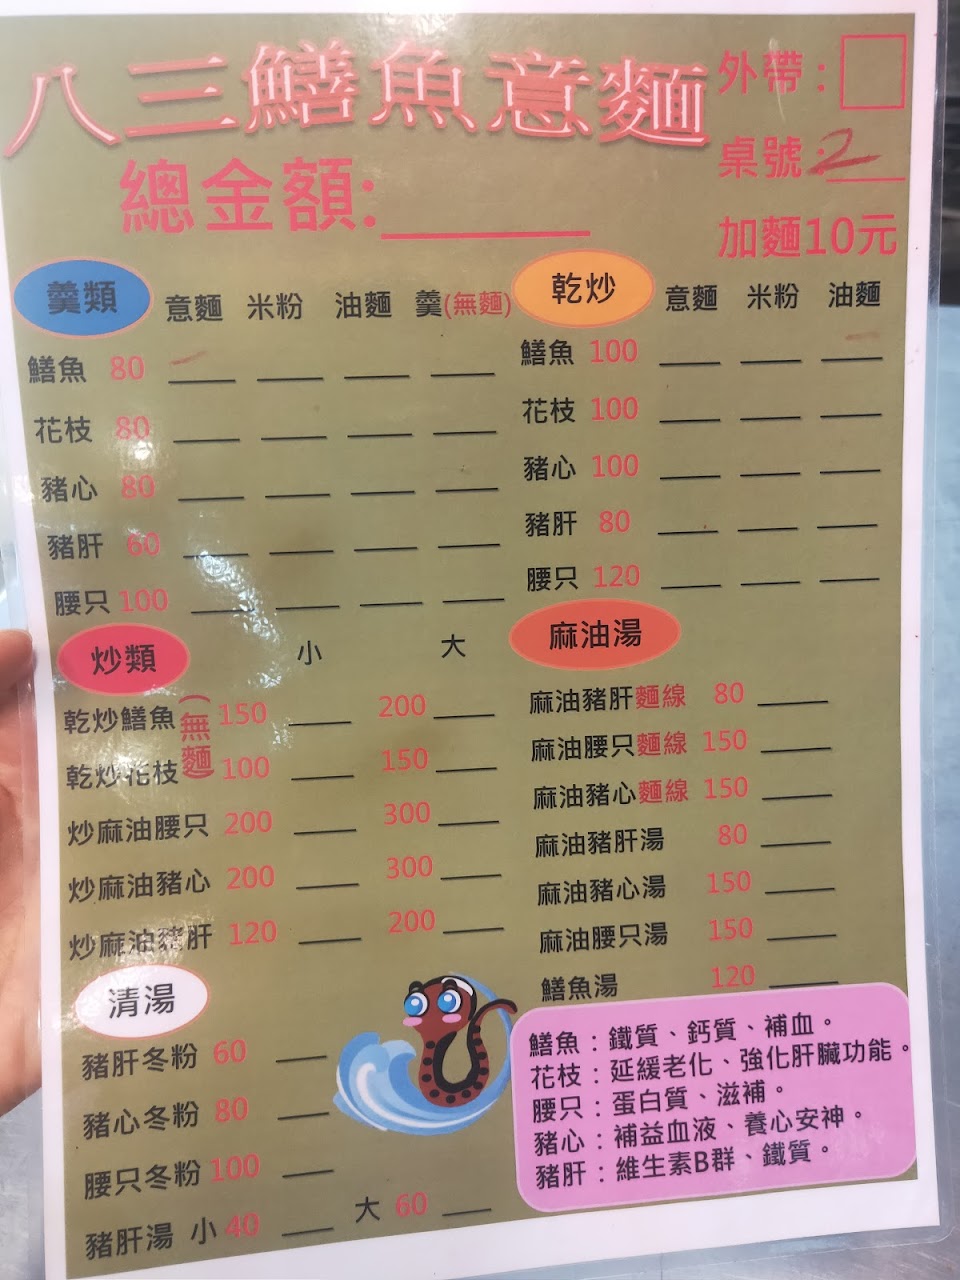 八三鱔魚意麵
外帶：
桌號：2
總金額:
加麵10元
羹類 意麵 米粉 油麵 羹(無麵)
鱔魚 80
花枝 80
豬心 80
豬肝 60
腰只 100
乾炒 意麵 米粉 油麵
鱔魚 100
花枝 100
豬心 100
豬肝 80
腰只 120
炒類 小 大
乾炒鱔魚(無麵) 150 200
乾炒花枝 100 150
炒麻油腰只 200 300
炒麻油豬心 200 300
炒麻油豬肝 120 200
麻油湯
麻油豬肝麵線 80
麻油腰只麵線 150
麻油豬心麵線 150
麻油豬肝湯 80
麻油豬心湯 150
麻油腰只湯 150
鱔魚湯 120
清湯
豬肝冬粉 60
豬心冬粉 80
腰只冬粉 100
豬肝湯 小 40 大 60
鱔魚：鐵質、鈣質、補血。
花枝：延緩老化、強化肝臟功能。
腰只：蛋白質、滋補。
豬心：補益血液、養心安神。
豬肝：維生素B群、鐵質。